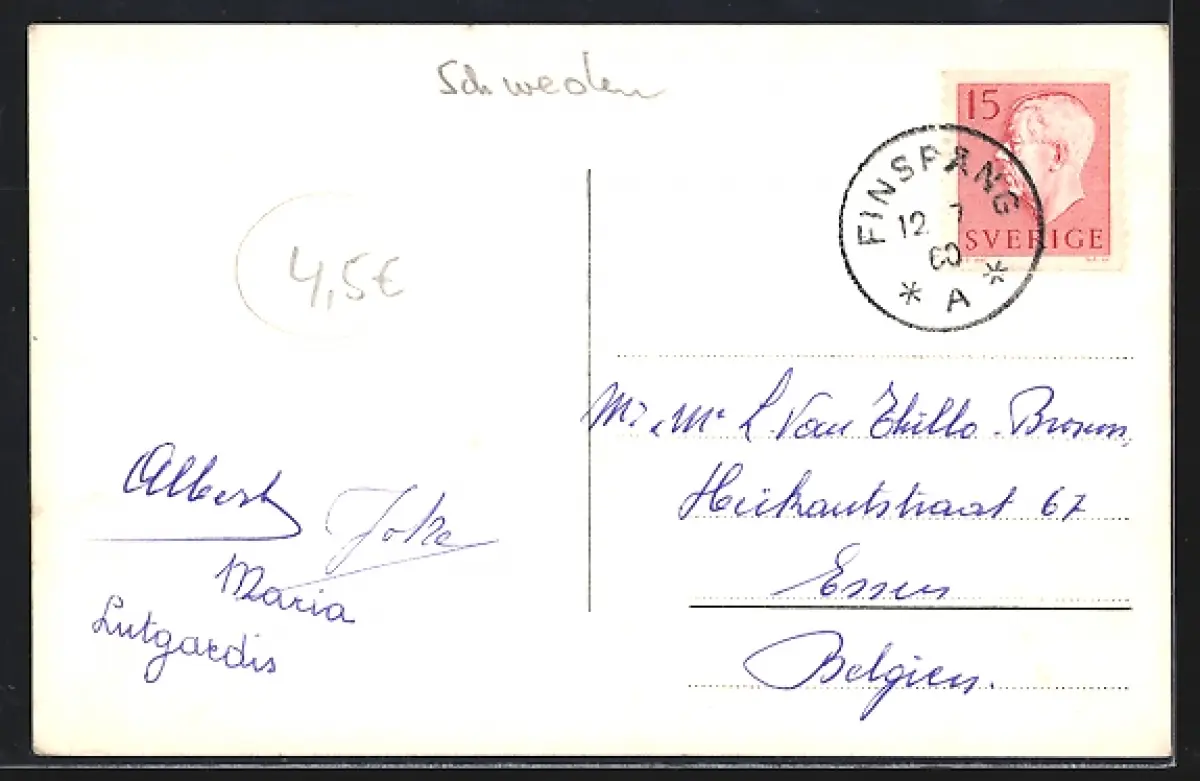 Schweden
15
SVERIGE
FINSPÅNG
12 7
60
* A *
4,5€
L. Van
Heikantstraat 67
Essen
Belgien.
Albert
Joke
Maria
Lutgardis